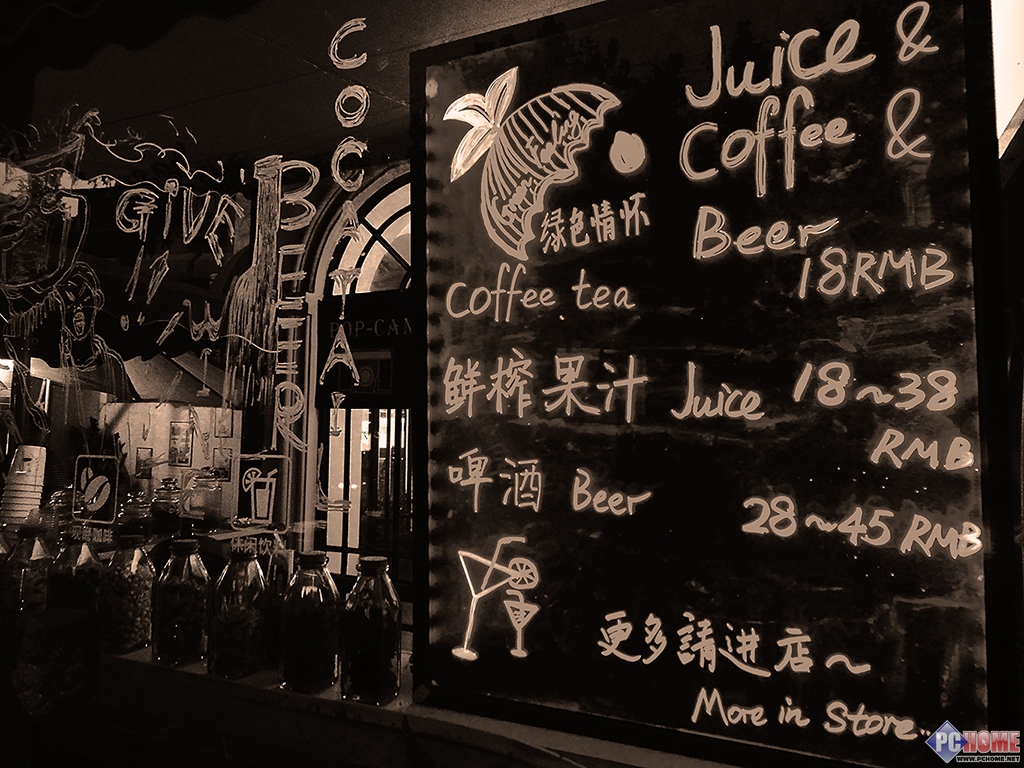 COCA
BEER
GIVE
POP-CAN
Juice &
Coffee &
Beer
绿色情怀
18RMB
Coffee tea
鲜榨果汁 Juice 18~38
RMB
啤酒 Beer
28~45 RMB
更多請进店~
More in Store..
PCHOME
WWW.PCHOME.NET